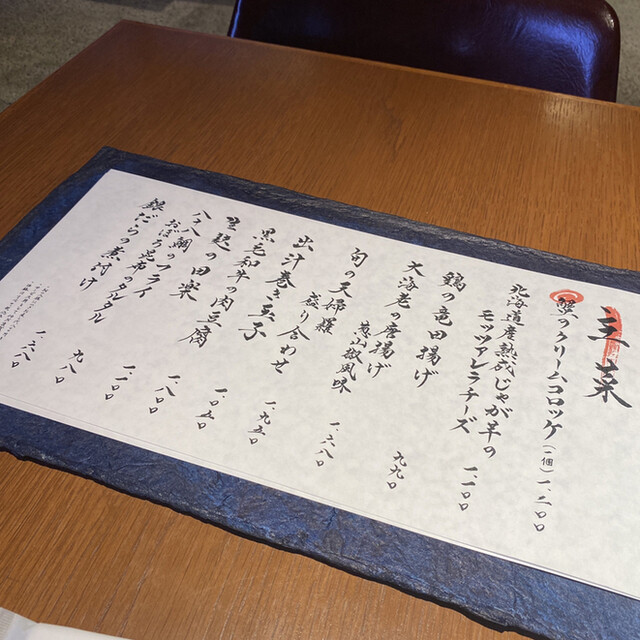 主菜
蟹のクリームコロッケ（二個）一、二〇〇
北海道産熟成じゃが芋の
モッツァレラチーズ 一、一〇〇
鶏の竜田揚げ 九九〇
大海老の唐揚げ
葱山椒風味 一、三八〇
旬の天婦羅
盛り合わせ 一、九五〇
出汁巻き玉子 一、〇五〇
黒毛和牛の肉豆腐 一、八〇〇
生麩の田楽 一、一〇〇
八八鯛のフライ
おぼろ昆布のタルタル 九八〇
銀だらの煮付け 一、三八〇